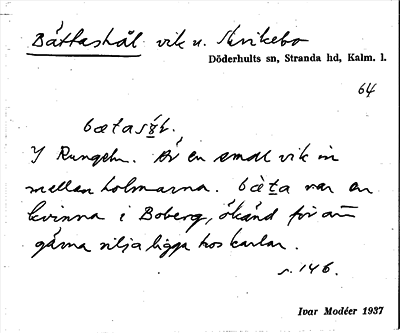 Båttashål vik u. Skrikebo
Döderhults sn, Stranda hd, Kalm. l.
64
I Rungeln. Är en smal vik in
mellan holmarna. bæ̀ta var en
kvinna i Boberg, ökänd för att
gärna vilja ligga hos karlar.
s. 146.
Ivar Modéer 1937